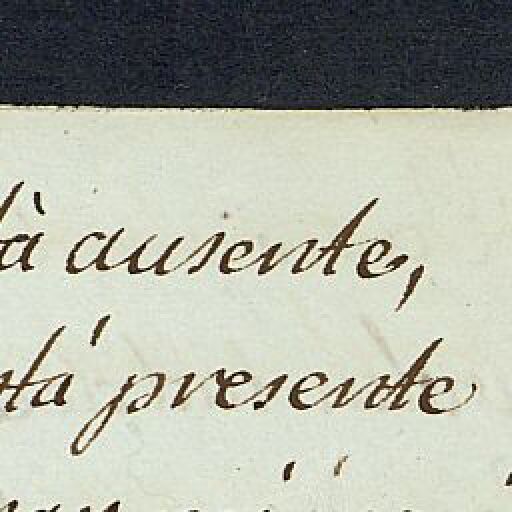 tà ausente,
stá presente